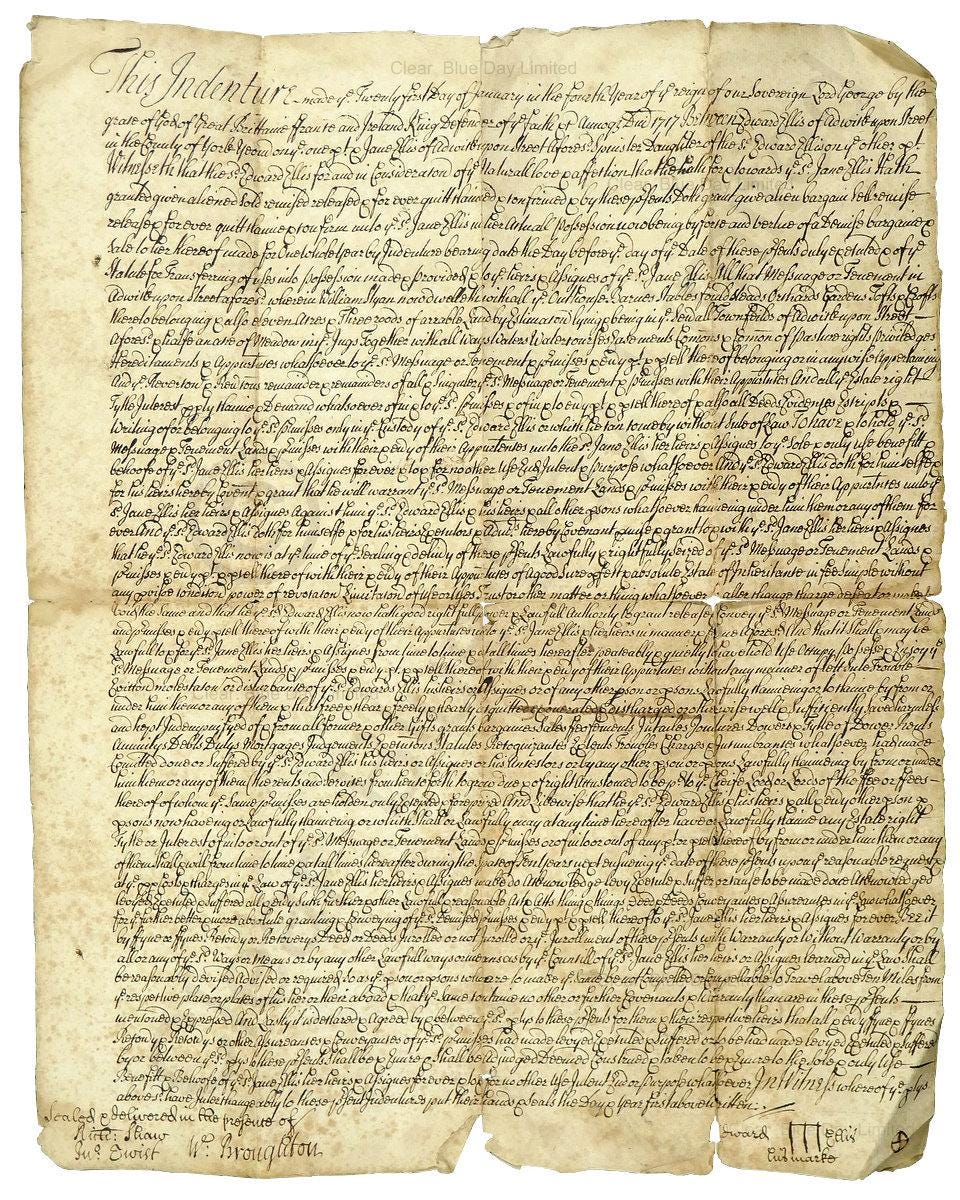 Clear Blue Day Limited
This Indenture made ye. Twenty first Day of January in the fourth Year of ye reign of our Sovereign Lord George by the
grace of God of Great Brittaine France and Ireland King Defender of ye faith &c Annoq Dni 1717 Between Edward Ellis of Adwick upon Street
in the County of York Yeoman on ye. one pt & Jane Ellis of Adwick upon Street afores. Spinster Daughter of the sd. Edward Ellis on ye other pt.
Witnesseth that the sd. Edward Ellis for and in Consideration of ye Naturall love & affection that he hath & towards ye. sd. Jane Ellis Hath
granted given aliened sold remised released & for ever quitt claimed & confirmed & by these psents Doth grant give alien bargain sell remise
release & for ever quitt claime & confirm unto ye. sd. Jane Ellis in her Actuall possession now being by force and vertue of a Demise bargaine &
Sale to her thereof made for One whole year by Indenture bearing date the Day before ye. day of ye. Date of these psents duly executed & of ye
Statute for Transferring of uses into possession made & provided & to ye. heirs & Assignes of ye. sd. Jane Ellis All that Messuage or Tenement in
Adwick upon Street afores. wherein William now dwelleth with all ye. Outhouses Barnes Stables Orchards Gardens Tofts & Crofts
thereto belonging & also eleven Acres & Three roods of arrable Land by Estimation lying & being in ye. sevall Townfeilds of Adwick upon Street
Afores. & halfe an acre of Meadow in ye. Ings Together with all Ways Waters Watercourses Easements Comons & Comon of pasture rights priviledges
Hereditaments & Apptences whatsoever to ye. sd. Messuage or Tenement & pmisses & evy pt. & psell thereof belonging or in any wise Appertaining
And ye. Revercon & Revcons remainder & remainders of all & singuler ye. sd. Messuage or Tenement & pmisses with their Apptences And all ye. Estate right
Tytle Interest Claime & Demand whatsoever of in & to ye. sd. pmisses & of in & to evy pt. & psell thereof & also all Deeds Evidences Escripts &
Writings or belonging to ye. sd. pmisses only in ye. Custody of ye. sd. Edward Ellis or which he can come by without Suite of Law To have & to hold ye. sd.
Messuage & Tenement Lands & pmisses with their & evy of their Apptences unto the sd. Jane Ellis her heirs & Assignes to ye. Sole & only use benefitt &
behoofe of ye. sd. Jane Ellis her heirs & Assignes for ever & to & for no other Use End Intent & purpose whatsoever And ye. sd. Edward Ellis doth for himselfe &
for his heirs hereby Covent & grant that he will warrant ye. sd. Messuage or Tenement Lands & pmisses with their & evy of their Apptences unto ye.
sd. Jane Ellis her heirs & Assignes Against him ye. sd. Edward Ellis & his heirs & all other psons whatsoever claiming under him them or any of them for
ever And ye. sd. Edward Ellis doth for himselfe & for his heirs Executors & Admrs. hereby Covenant & grant to & with ye. sd. Jane Ellis her heirs & Assignes
that he ye. sd. Edward Ellis now is at ye. time of ye. Sealing & delivery of these psents Lawfully & rightfully seized of ye. sd. Messuage or Tenement Lands &
pmisses & evy pt. & psell thereof with their & evy of their Apptences of a good sure pfect & absolute Estate of Inheritance in fee simple without
any condition power of revocation Limitation of use or uses or other matter or thing whatsoever to alter change charge defeat or make
void the Same and that he ye. sd. Edward Ellis now hath good right full power & Lawfull Authority to grant release & Convey ye. sd. Messuage or Tenement Lands
and pmisses & evy psell thereof with their & evy of their Apptences unto ye. sd. Jane Ellis & her heirs in manner & forme afores. And that it shall & may be
Lawfull to & for ye. sd. Jane Ellis her heirs & Assignes from time to time & at all times hereafter peaceably & quietly to have hold Use Occupy possess & Enjoy ye
sd. Messuage or Tenement Lands & pmisses & evy pt. & psell thereof with their & evy of their Apptences without any manner of lett Suite Trouble
Eviction molestation or disturbance of ye. sd. Edward Ellis his heirs or Assignes or of any other pson or psons Lawfully claimeing or to claime by from or
under him them or any of them & that free & clear & freely & clearly acquitted exonerated & discharged or otherwise well & sufficiently saved harmless
and kept Indemnifyed of & from all former & other Gifts grants bargaines Sales Feoffements Intailes Joyntures Dowers & Tytle of Dower Rents
Annuitys Debts Dutys Mortgages Judgements Executions Statutes Recognizances Extents Troubles Charges & Incumbrances whatsoever had made
Comitted done or suffered by ye. sd. Edward Ellis his heirs or Assignes or his Ancestors or by any other pson or psons Lawfully claimeing by from or under
him them or any of them (the rents and services from henceforth to grow due & of right Accustomed to be pd. to ye. Cheife Lord or Lords of the ffee or ffees
thereof of whom ye. Same pmisses are holden only Excepted & foreprized And Likewise that he ye. sd. Edward Ellis & his heirs & all & evy other pson &
psons now haveing or Lawfully claimeing or which shall or Lawfully may at any time hereafter have or Lawfully claime any Estate right
Tytle or Interest of in to or out of ye. sd. Messuage or Tenement Lands & pmisses or of in to or out of any pt. or psell thereof by from or under him them or any
of them shall & will from time to time & at all times hereafter during the space of Ten years next ensueing ye. date of these psents upon ye. reasonable request &
at ye. Costs & charges in ye. Law of ye. sd. Jane Ellis her heirs & Assignes make do Acknowledge levy Execute & suffer or cause to be made done Acknowledged
levyed Executed & suffered all & evy such further & other Lawfull & reasonable Act & Acts thing & things deed & Deeds Conveyances & Assurances in ye. Law whatsoever
for ye. further better & more absolute granting & Conveying of ye. sd. Demised pmisses & evy pt. & psell thereof to ye. sd. Jane Ellis her heirs & Assignes for ever Bee it
by Fyne or Fynes Recovy or Recoverys Deed or Deeds Inrolled or not Inrolled or ye. Inrollment of these psents with Warranty or Without Warranty or by
all or any of ye. sd. Ways or Means or by any other Lawfull ways or means as by ye. Councill of ye. sd. Jane Ellis her heirs or Assignes learned in ye. Law shall
be reasonably devised Advised or required so as ye. pson or psons who are to make ye. Same be not Compelled or Compellable to Travel above Ten Miles from
ye. respective place or places of his her or their aboad & that ye. same contain no other or further Covenants & Warranty than are in these psents
mentioned & Expressed And Lastly it is declared & Agreed by & between ye. sd. ptys to these psents for them & their respective heirs that all & evy Fyne & Fynes
Recovy & Recoverys or other Assurances & Conveyances of ye. sd. pmisses had made levyed Executed suffered or to be had made levyed Executed suffered
by or between ye. sd. ptys to these psents shall be & Enure & shall be Adjudged Deemed Construed & taken to be & Enure to the sole & only Use
Benefitt & Behoofe of ye. sd. Jane Ellis her heirs & Assignes for ever & to & for no other Use Intent End or purpose whatsoever In Witness whereof ye. ptys
aboves. have Interchangeably to these psent Indentures putt their hands & seals the Day & Year first above written
Sealed & delivered in the presence of
Richd: Shaw
Jno. Twist Wm. Broughton
Edward Ellis
his marke